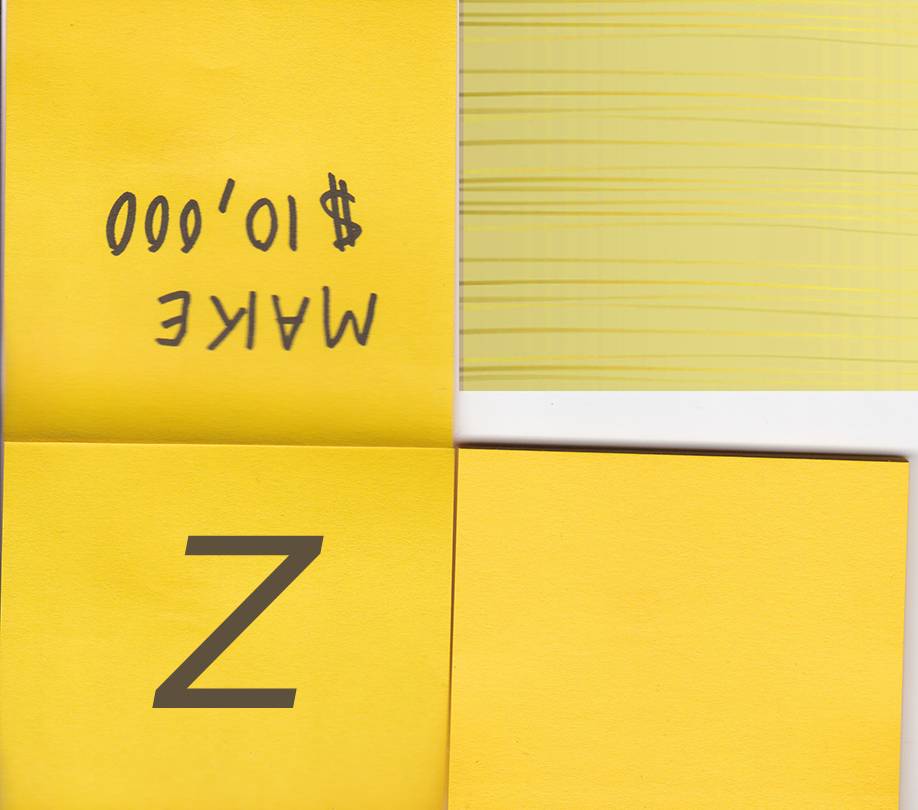 MAKE
$10,000
Z